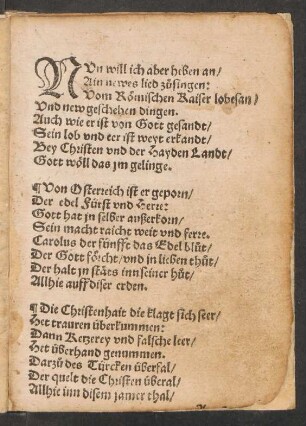 NUn will ich aber heben an/
Ain newes lied zůsingen:
Vom Römischen Kaiser lobesan/
Vnd new geschehen dingen.
Auch wie er ist von Gott gesandt/
Sein lob vnd eer ist weyt erkandt/
Bey Christen vnd der Hayden Landt/
Gott wöll das jm gelinge.
¶ Von Osterreich ist er geporn/
Der edel Fürst vnd Herre:
Gott hat jn selber außerkorn/
Sein macht raicht weit vnd ferre.
Carolus der fünffte das Edel blůt/
Der Gott förcht/ vnd jn lieben thůt/
Der halt jn stäts inn seiner hůt/
Allhie auff diser erden.
¶ Die Christenhait die klagt sich seer/
Het trauren überkummen:
Dann Ketzerey vnd falsche leer/
Het überhand genummen.
Darzů des Türcken überfal/
Der quelt die Christen überal/
Allhie inn disem jamer thal/